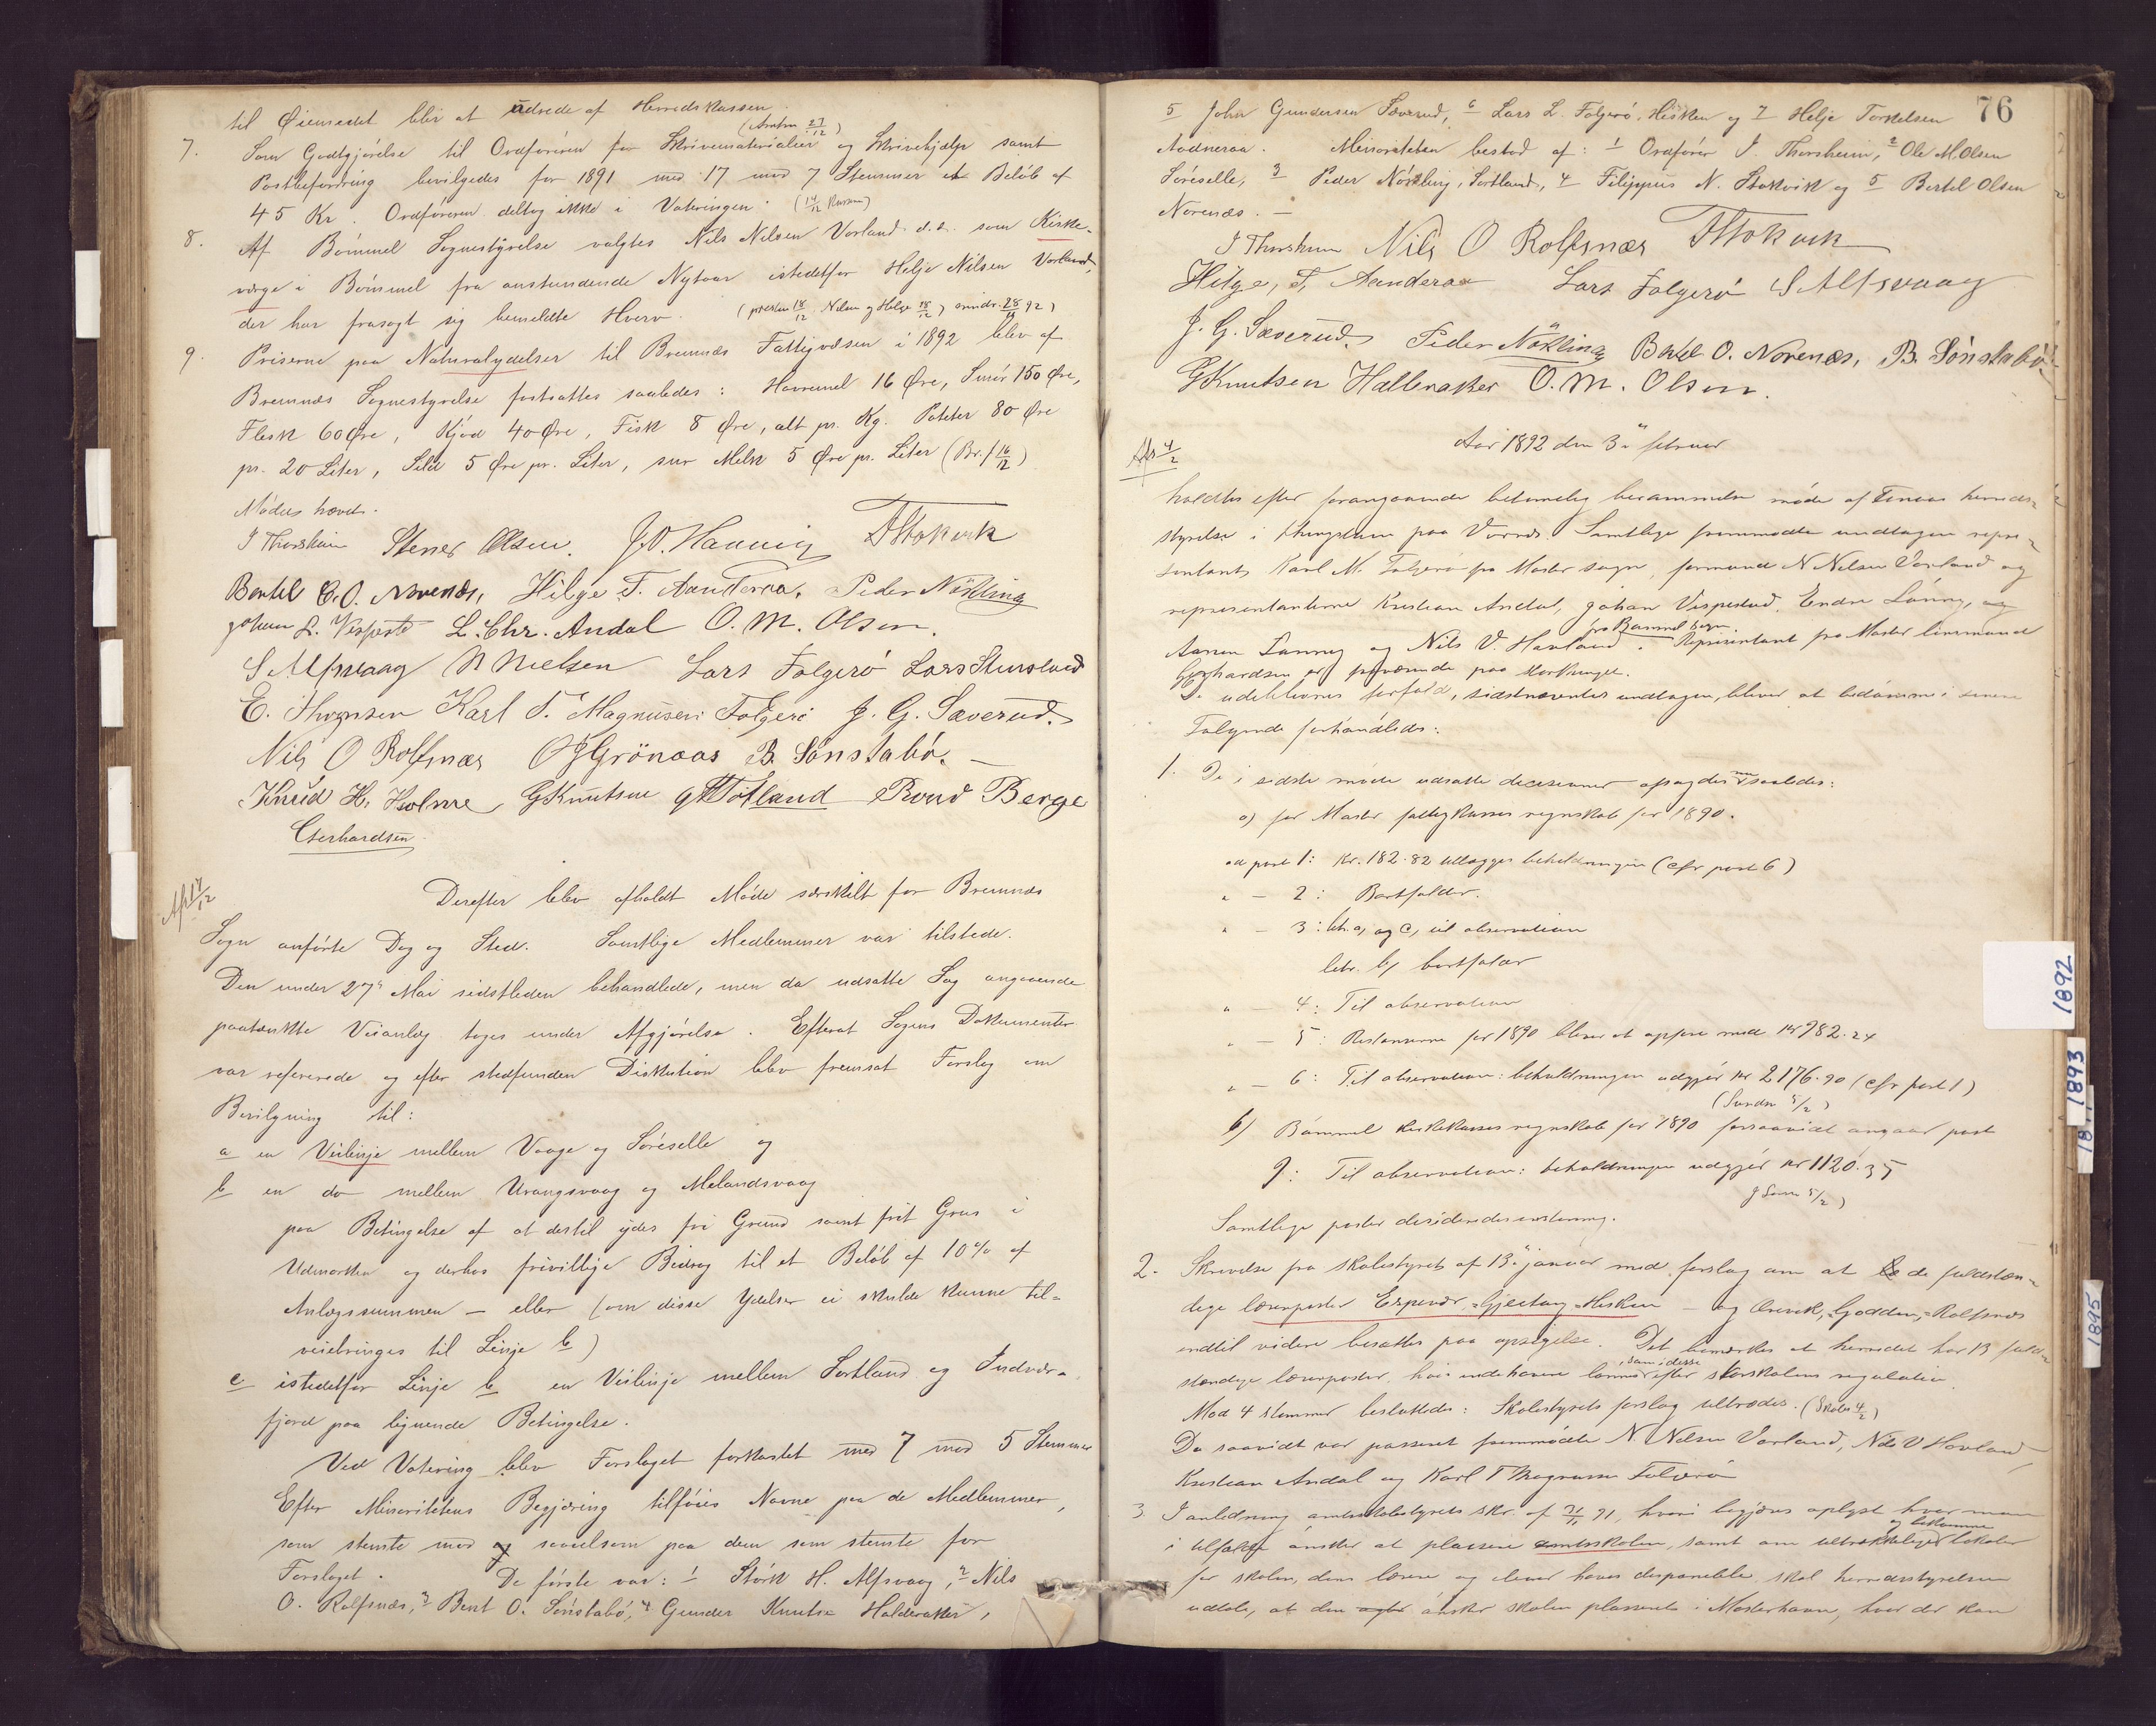 til Øiemedet blir at udrede af Herredskassen.
7. Som Godtgjørelse til Ordføreren for Skrivematerialier og Skrivehjælp samt
Postbefordring bevilgedes for 1891 med 17 mod 7 Stemmer et Beløb af
45 Kr. Ordføreren deltog ikke i Voteringen.
8. Af Bømmel Sognestyrelse valgtes Nils Nilsen Vorland d.e. som Kirke-
værge i Bømmel fra anstundende Nytaar istedetfor Helje Nilsen Vorland,
der har frasagt sig bemeldte Hverv.
9. Priserne paa Naturalydelser til Bremnæs Fattigvæsen i 1892 blev af
Bremnæs Sognestyrelse fortsattes saaledes: Havremel 16 Øre, Smør 150 Øre,
Flesk 60 Øre, Kjød 40 Øre, Fisk 8 Øre, alt pr. Kg. Poteter 80 Øre
pr. 20 Liter, Sild 5 Øre pr. Liter, sur Melk 5 Øre pr. Liter (Br. f 16/12)
Mødets hævet.
J Thorsheim Stener Olsen. J.O. Hannig FStokvik
Bertel E.O. Norenæs, Hilge T. Aanderaa, Peder Nökling
Johan L. Vespestd L. Chr. Andal O. M. Olsen.
S Alfsvaag N Nielsen Lars Folgerø Lars Stensland
E. Thorgersen Karl T. Magnusen Folgerö J. G. Sæverud.
Nils O Rolfsnæs O J Grönaas B. Sønstabø.
Knud H. Holme GKnutsen G H Totland Roud Berge
Gerhardsen
Aft 17/12
Derefter blev afholdt Møde særskilt for Bremnæs
Sogn anførte Dag og Sted. Samtlige Medlemmer var tilstede.
Den under 27de Mai sidstleden behandlede, men da udsatte Sag angaaende
paatænkte Veianlæg toges under Afgjørelse. Efterat Sagens Dokumenter
var refererede og efter stedfunden Diskution blev fremsat Forslag om
Bevilgning til:
a en Veilinje mellem Vaage og Søreselle og
b en do mellem Urangsvaag og Melandsvaag
paa Betingelse af at dertil ydes fri Grund samt frit Grus i
Udmarken og derhos frivillige Bidrag til et Beløb af 10% af
Anlægssummen – eller (om disse Ydelser ei skulde kunne til-
veiebringes til Linje b)
c istedetfor Linje b en Veilinje mellem Sortland og Indvær-
fjord paa lignende Betingelse.
Ved Votering blev Forslaget forkastet med 7 mod 5 Stemmer
Efter Minoritetens Begjæring tilføies Navne paa de Medlemmer,
som stemte mod saavelsom paa dem som stemte for
Forslaget. De første var: 1 Størk H. Alfsvaag, 2 Nils
O. Rolfsnæs, 3 Bent O. Sønstabø, 4 Gunder Knutsen Halderaker,
76
5 John Gundersen Sæverud, 6 Lars L. Folgerø, Hisken og 7 Helje Torkelsen
Aadneraa. Minoriteten bestod af: 1 Ordfører J. Thorsheim, 2 Ole M. Olsen
Søreselle, 3 Peder Nökling, Sortland, 4 Filippus N. Stokvik og 5 Bertel Olsen
Norenæs. –
J Thorsheim Nils O Rolfsnæs FStokvik
Hilge, T, Aanderaa Lars Folgerø S Alfsvaag
J. G. Sæverud. Peder Nökling Bertel O. Norenæs, B. Sønstabø.
GKnutsen Halleraker O. M. Olsen.
Aft 4/2
Aar 1892 den 3die februar
holdtes efter forangaaende betimelig berammelse møde af Finaas herreds-
styrelse i thingstuen paa Vornæs. Samtlige fremmødte undtagen repre-
sentant Karl M. Folgerø fra Moster sogn, formand N Nelsen Vorland og
representanterne Kristian Andal, Johan Vespestad, Endre Lønning,
Aamun Lønning og Nils V. Havland fra Bømmel sogn. Representant fra Moster lensmand
Gerhardsen er fraværende paa Storthinget.
De udeblevnes forfald, sidstnævntes undtagen, bliver at bedømme i senere
Følgende forhandledes:
1. De i sidste møde udsatte decisioner afsagdes nu saaledes:
a) for Moster fattigkasses regnskab for 1890.
ad post 1: Kr. 182.82 tillægges beholdningen (cfr post 6)
" – 2: Bortfalder.
" – 3: litr. a, og c, til observation
litr. b, bortfalder
" – 4: Til observation
" – 5: Restancerne for 1890 bliver at opføre med kr 982.24
" – 6: Til observation: beholdningen udgjør kr 2176.90 (cfr post 1)
b) Bømmel kirkekasses regnskab for 1890 forsaavidt angaar post
9: Til observation: beholdningen udgjør kr 1120.35
Samtlige poster desideredes enstemmig.
2. Skrivelse fra skolestyret af 13de januar med forslag om at de fuldstæn-
dige lærerposter Espevær, Gjeitung-Hisken – og Ørevik, Goddeu, Rolfsnæs
indtil videre besættes paa opsigelse. Det bemærkes at herredet har 13 fuld-
stændige lærerposter, hvis indehavere lønnes efter storskolens regulativ.
Mod 4 stemmer besluttedes: Skolestyrets forslag tiltrædes. (Skoles 4/2)
Da saavidt var passeret fremmødte N. Nelsen Vorland, Nils V Havland
Kristian Andal og Karl T Magnusen Folgerø
3 I anledning amtsskolestyrets skr. af 21/11 91, hvori begjæres oplyst hvor man
i tilfælde ønsker at plassere amtsskolen, samt om tilstrækkelige og bekvemme lokaler
for skolen, dens lærere og elever haves disponible skal herredsstyrelsen
udtale, at den ønsker skolen plasseret i Mosterhavn, hvor der kan
1892
1893
1895